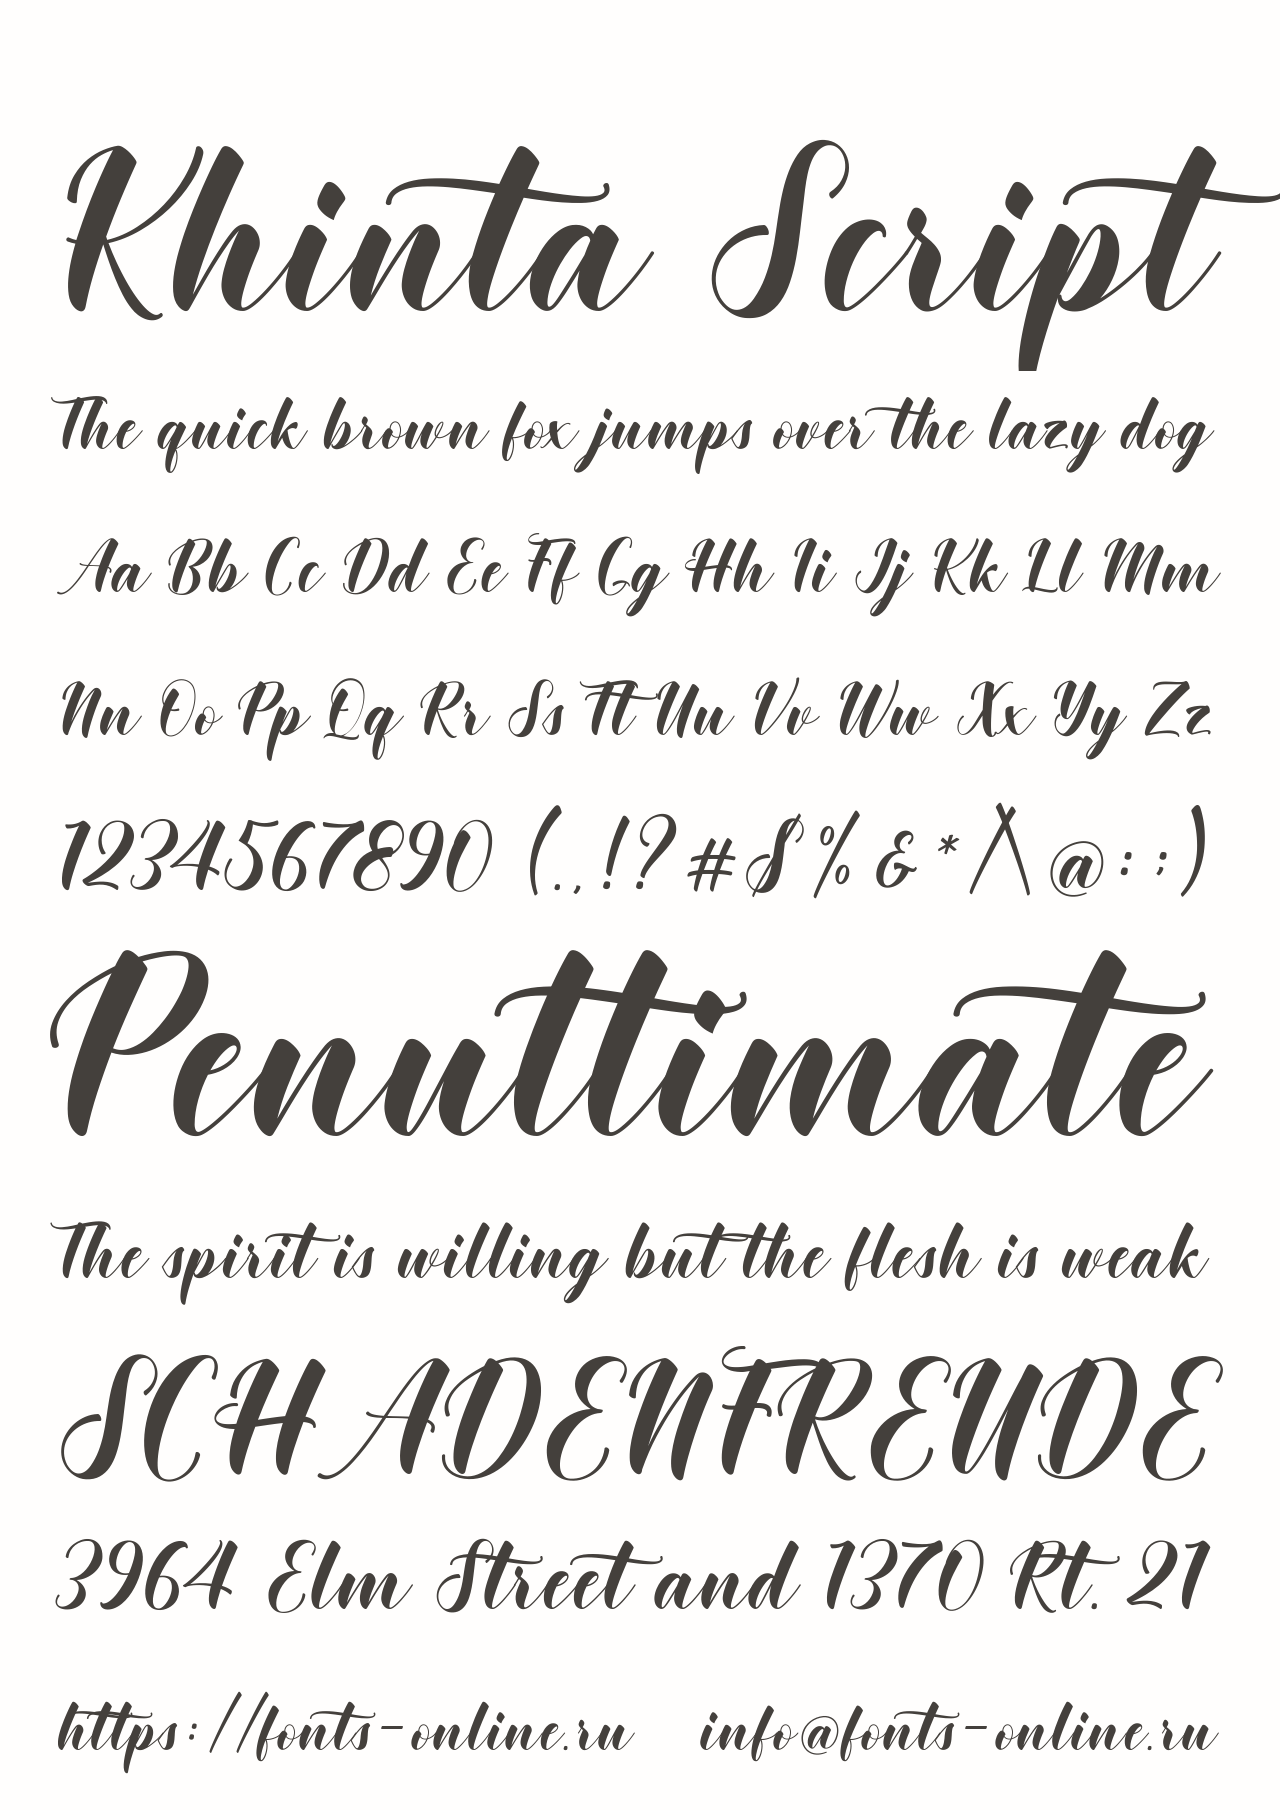 Khinta Script
The quick brown fox jumps over the lazy dog
Aa Bb Cc Dd Ee Ff Gg Hh Ii Jj Kk Ll Mm
Nn Oo Pp Qq Rr Ss Tt Uu Vv Ww Xx Yy Zz
1234567890 (.,!?#$%&*/\@:;)
Penultimate
The spirit is willing but the flesh is weak
SCHADENFREUDE
3964 Elm Street and 1370 Rt. 21
https://fonts-online.ru info@fonts-online.ru